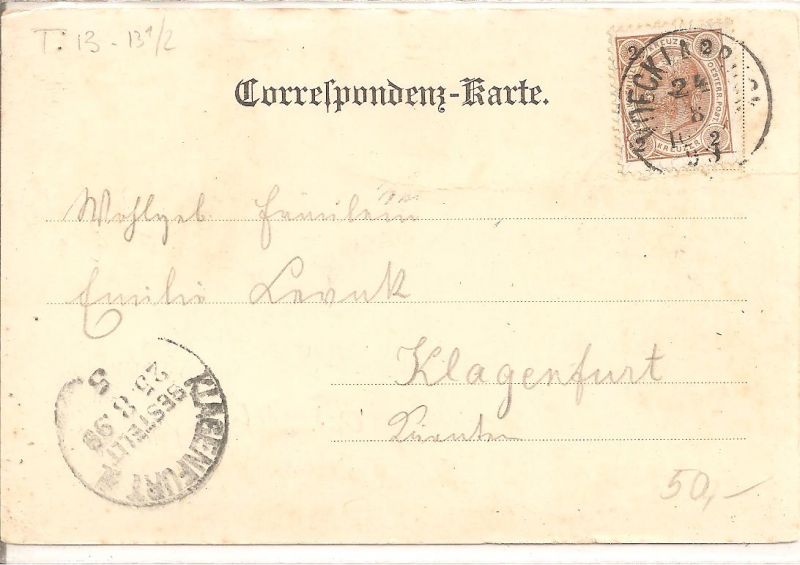 T. 13 - 13 1/2
Correspondenz-Karte.
2 KREUZER 2
OESTERR. POST
2 KREUZER 2
24
8
Wohlgeb. Fräulein
Emilie
Klagenfurt
Kärnten
KLAGENFURT
BESTELLT
25.8.99
5
50,-